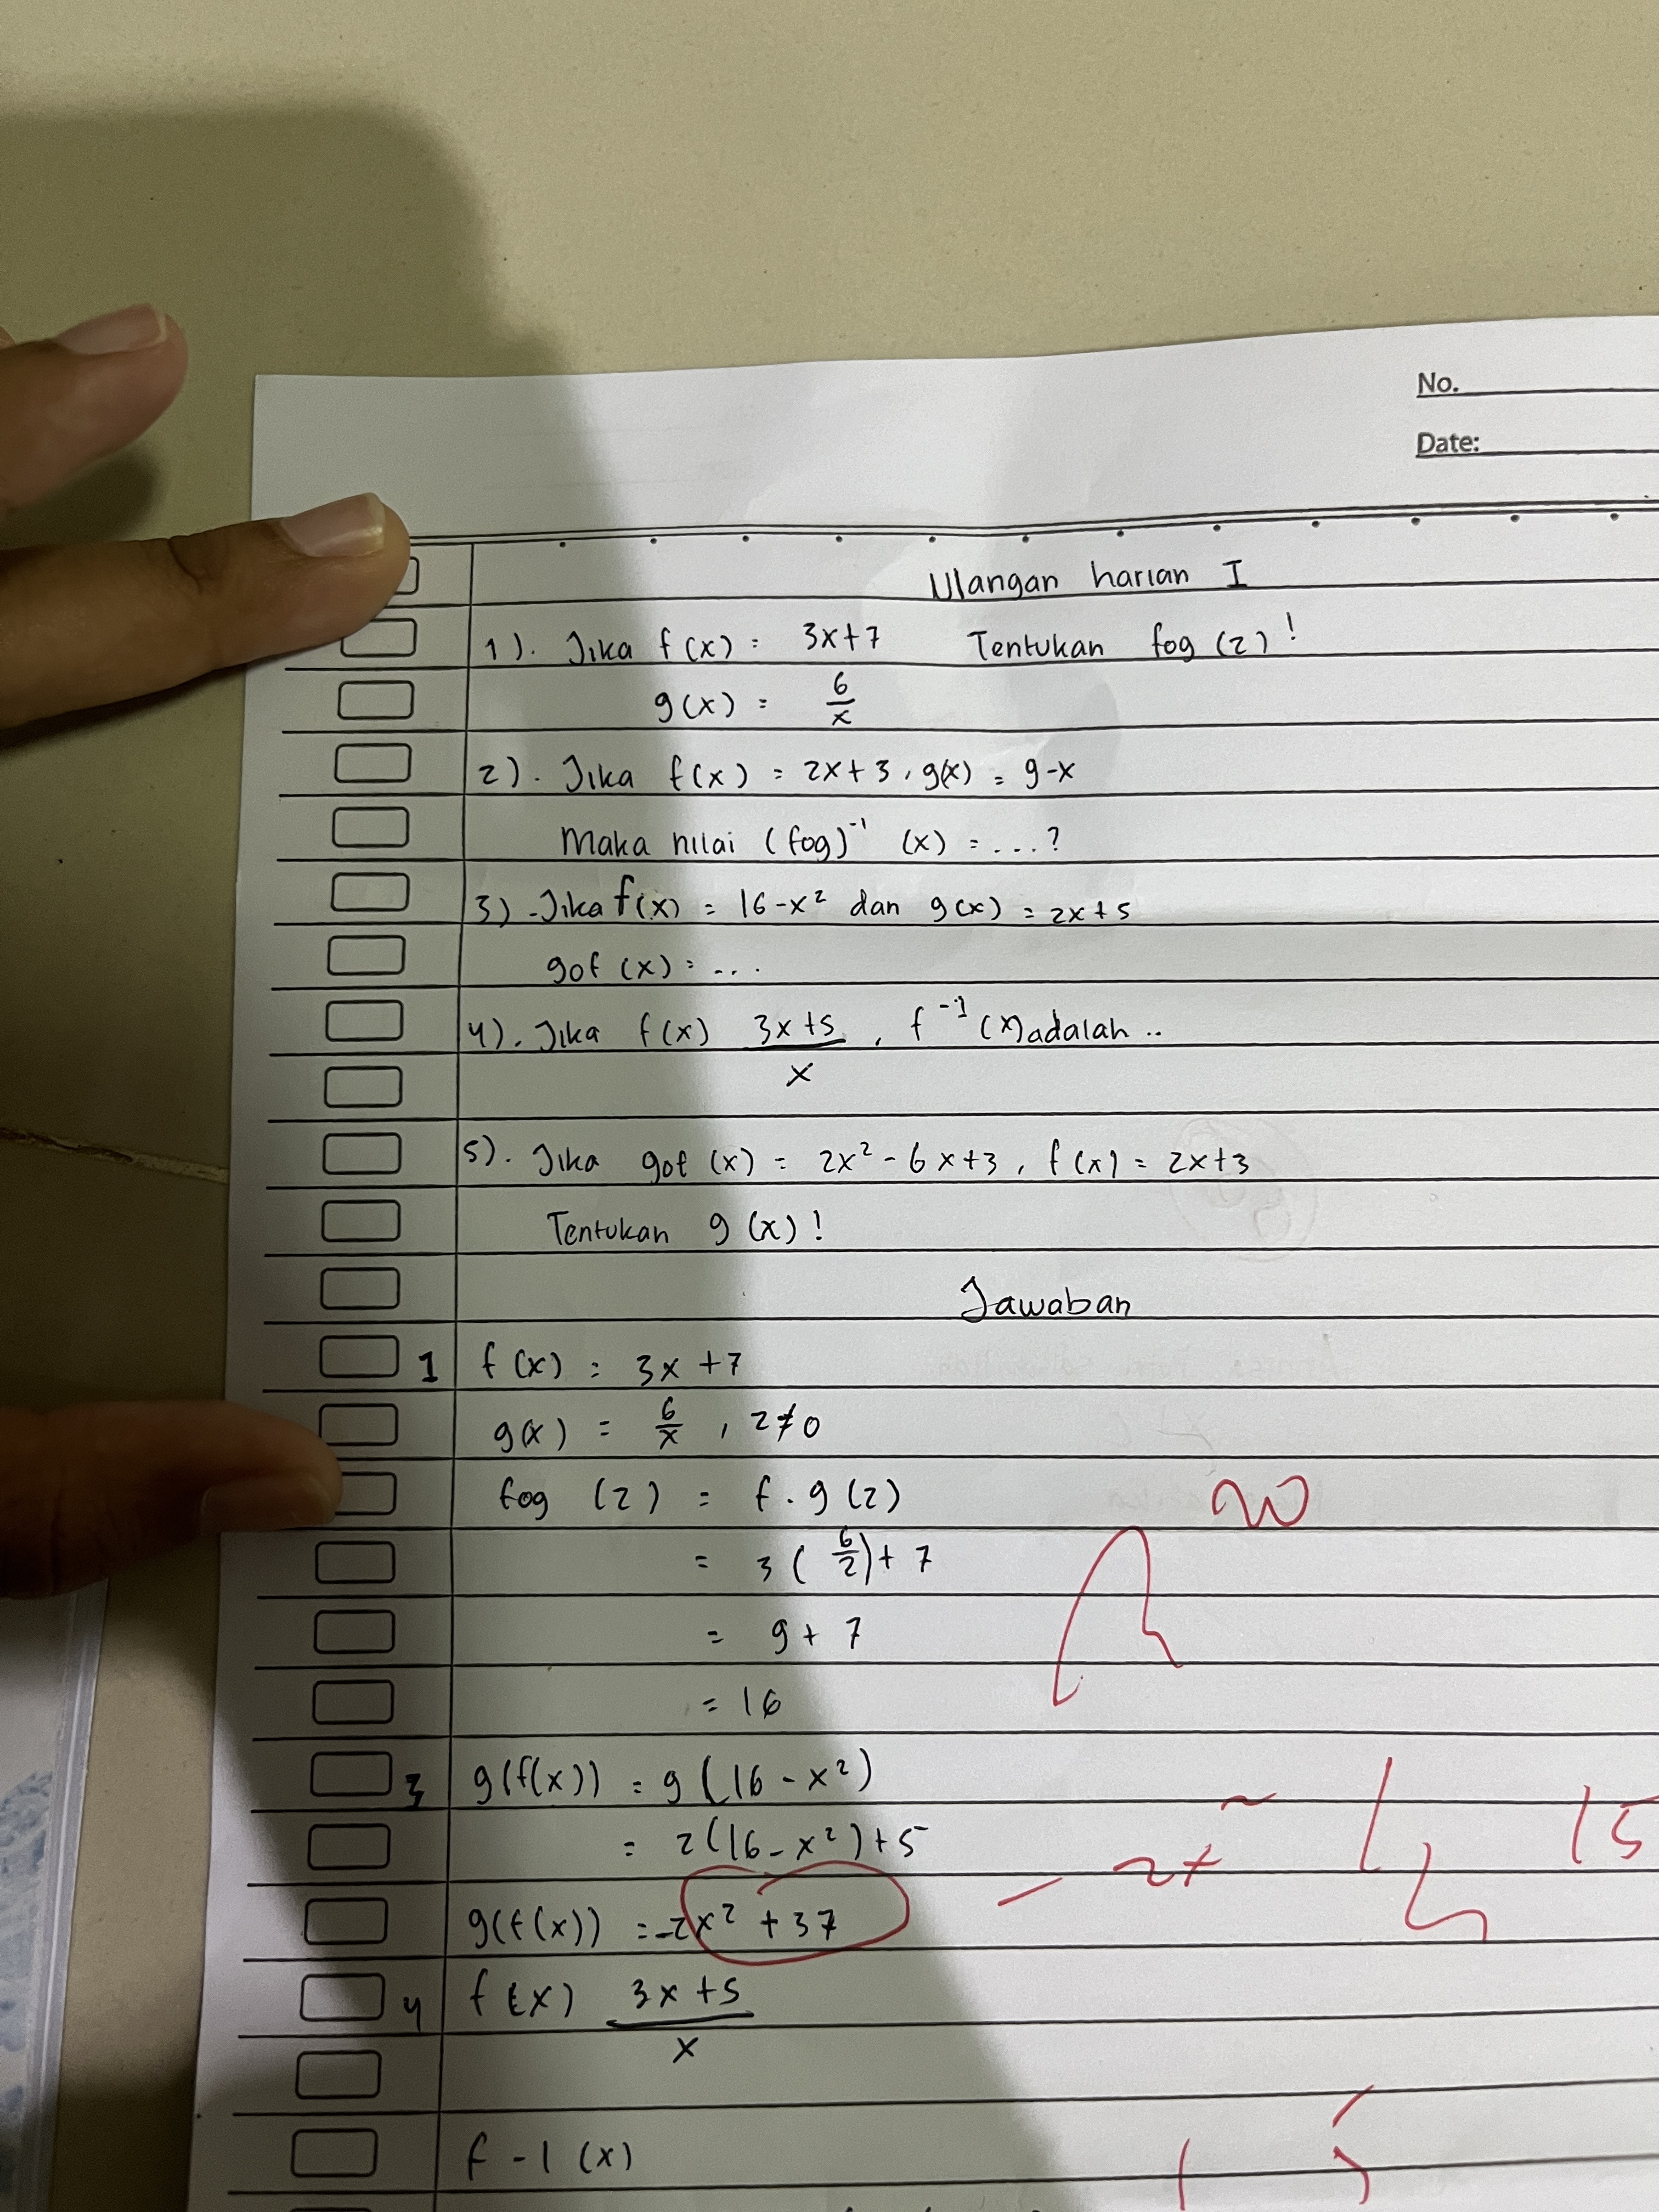 No.
Date:
Ulangan harian I
1). Jika f(x) = 3x+7 Tentukan fog (2)!
g(x) = 6/x
2). Jika f(x) = 2x+3, g(x) = 9-x
Maka nilai (fog)⁻¹ (x) = ...?
3) Jika f(x) = 16-x² dan g(x) = 2x+5
gof (x) = ...
4). Jika f(x) 3x+5/x, f⁻¹ (x) adalah ..
5). Jika gof (x) = 2x² - 6x+3, f(x) = 2x+3
Tentukan g(x)!
Jawaban
1 f(x) = 3x +7
g(x) = 6/x, 2≠0
fog (2) = f. g(2)
20
= 3(6/2)+ 7
= 9+ 7
= 16
3 g(f(x)) = g(16 - x²)
= 2(16-x²)+5
15
g(f(x)) = -2x² +37
4 f(x) 3x+5/x
f -1 (x)